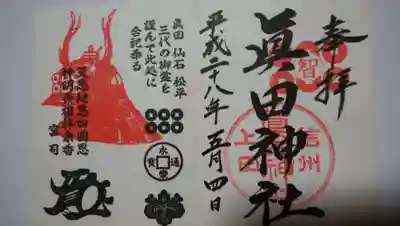 奉拝
眞田神社
平成二十八年五月四日
眞田 仙石 松平
三代の御霊を
謹んで此処に
合祀奉る
宮司
永楽通寳
智
信州
上田
眞田神社